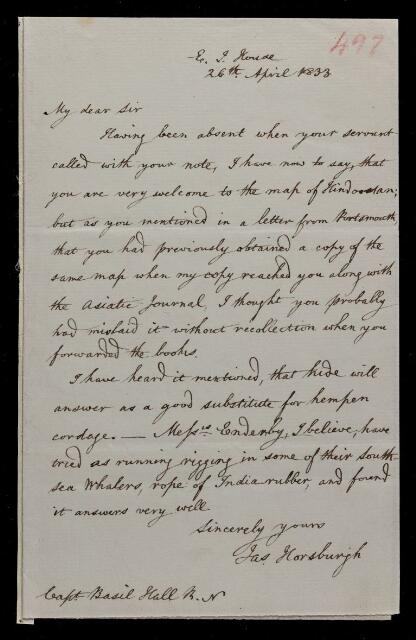 497
E. I. House
26th April 1833
My dear Sir
Having been absent when your servant
called with your note, I have now to say, that
you are very welcome to the map of Hindoostan;
but as you mentioned in a letter from Portsmouth,
that you had previously obtained a copy of the
same map when my copy reached you along with
the Asiatic Journal, I thought you probably
had mislaid it without recollection when you
forwarded the books.
I have heard it mentioned, that hide will
answer as a good substitute for hempen
cordage. — Messrs Enderby, I believe, have
tried as running rigging in some of their south
sea Whalers, rope of India rubber, and found
it answers very well
Sincerely yours
Jas. Horsburgh
Capt. Basil Hall R. N